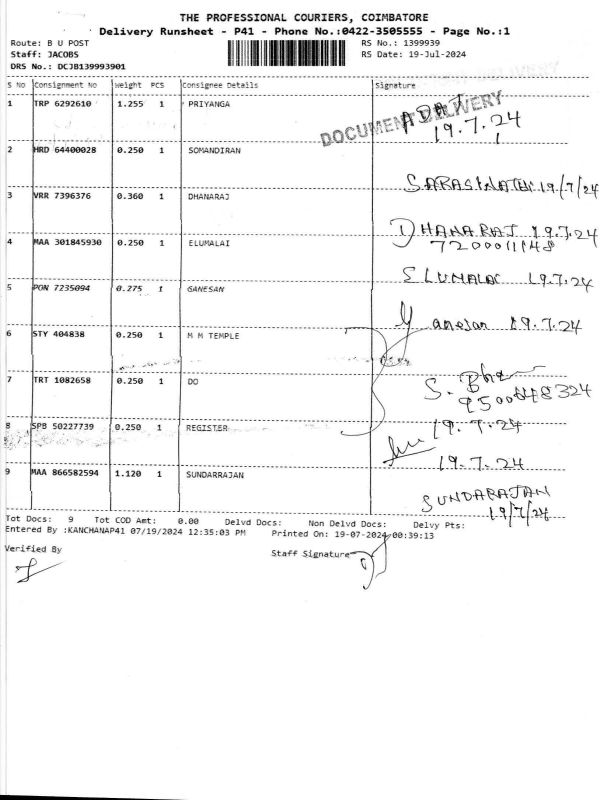 THE PROFESSIONAL COURIERS, COIMBATORE
Delivery Runsheet - P41 - Phone No.:0422-3505555 - Page No.:1
Route: B U POST RS No.: 1399939
Staff: JACOBS RS Date: 19-Jul-2024
DRS No.: DCJB139993901
S No Consignment No Weight PCS Consignee Details Signature
1 TRP 6292610 1.255 1 PRIYANGA
DOCUMENT DELIVERY
19.7.24
2 HRD 64400028 0.250 1 SOMANDIRAN
19/7/24
3 VRR 7396376 0.360 1 DHANARAJ
DHANARAJ 19.7.24
4 MAA 301845930 0.250 1 ELUMALAI
ELUMALAI 19.7.24
5 PON 7235094 0.275 1 GANESAN
Ganesan 19.7.24
6 STY 404838 0.250 1 M M TEMPLE
7 TRT 1082658 0.250 1 DO
19.7.24
8 SPB 50227739 0.250 1 REGISTER
19.7.24
9 MAA 866582594 1.120 1 SUNDARRAJAN
SUNDARAJAN
19/7/24
Tot Docs: 9 Tot COD Amt: 0.00 Delvd Docs: Non Delvd Docs: Delvy Pts:
Entered By :KANCHANAP41 07/19/2024 12:35:03 PM Printed On: 19-07-2024 00:39:13
Verified By Staff Signature